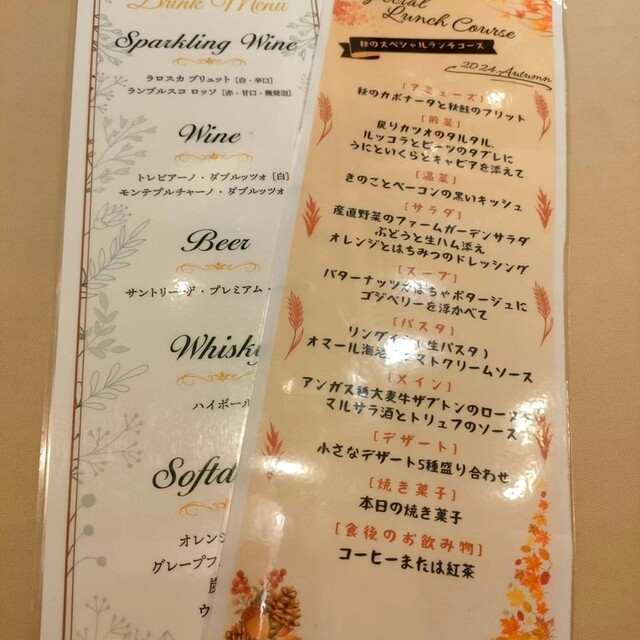 Drink Menu
Sparkling Wine
ラロスカ ブリュット [白・辛口]
ランブルスコ ロッソ [赤・甘口・微発泡]
Wine
トレビアーノ・ダブルッツォ [白]
モンテプルチャーノ・ダブルッツォ
Beer
サントリー ザ・プレミアム・
Whisky
ハイボール
オレンジ
グレープフ
Lunch Course
秋のスペシャルランチコース
2024.Autumn
[アミューズ]
秋のカポナータと秋鮭のフリット
[前菜]
戻りカツオのタルタル、
ルッコラとビーツのタブレに
うにといくらとキャビアを添えて
[温菜]
きのことベーコンの黒いキッシュ
[サラダ]
産直野菜のファームガーデンサラダ
ぶどうと生ハム添え
オレンジとはちみつのドレッシング
[スープ]
バターナッツかぼちゃポタージュに
ゴジベリーを浮かべて
[パスタ]
(生パスタ)
オマール海老 トマトクリームソース
[メイン]
アンガス種大麦牛ザブトンのロースト
マルサラ酒とトリュフのソース
[デザート]
小さなデザート5種盛り合わせ
[焼き菓子]
本日の焼き菓子
[食後のお飲み物]
コーヒーまたは紅茶